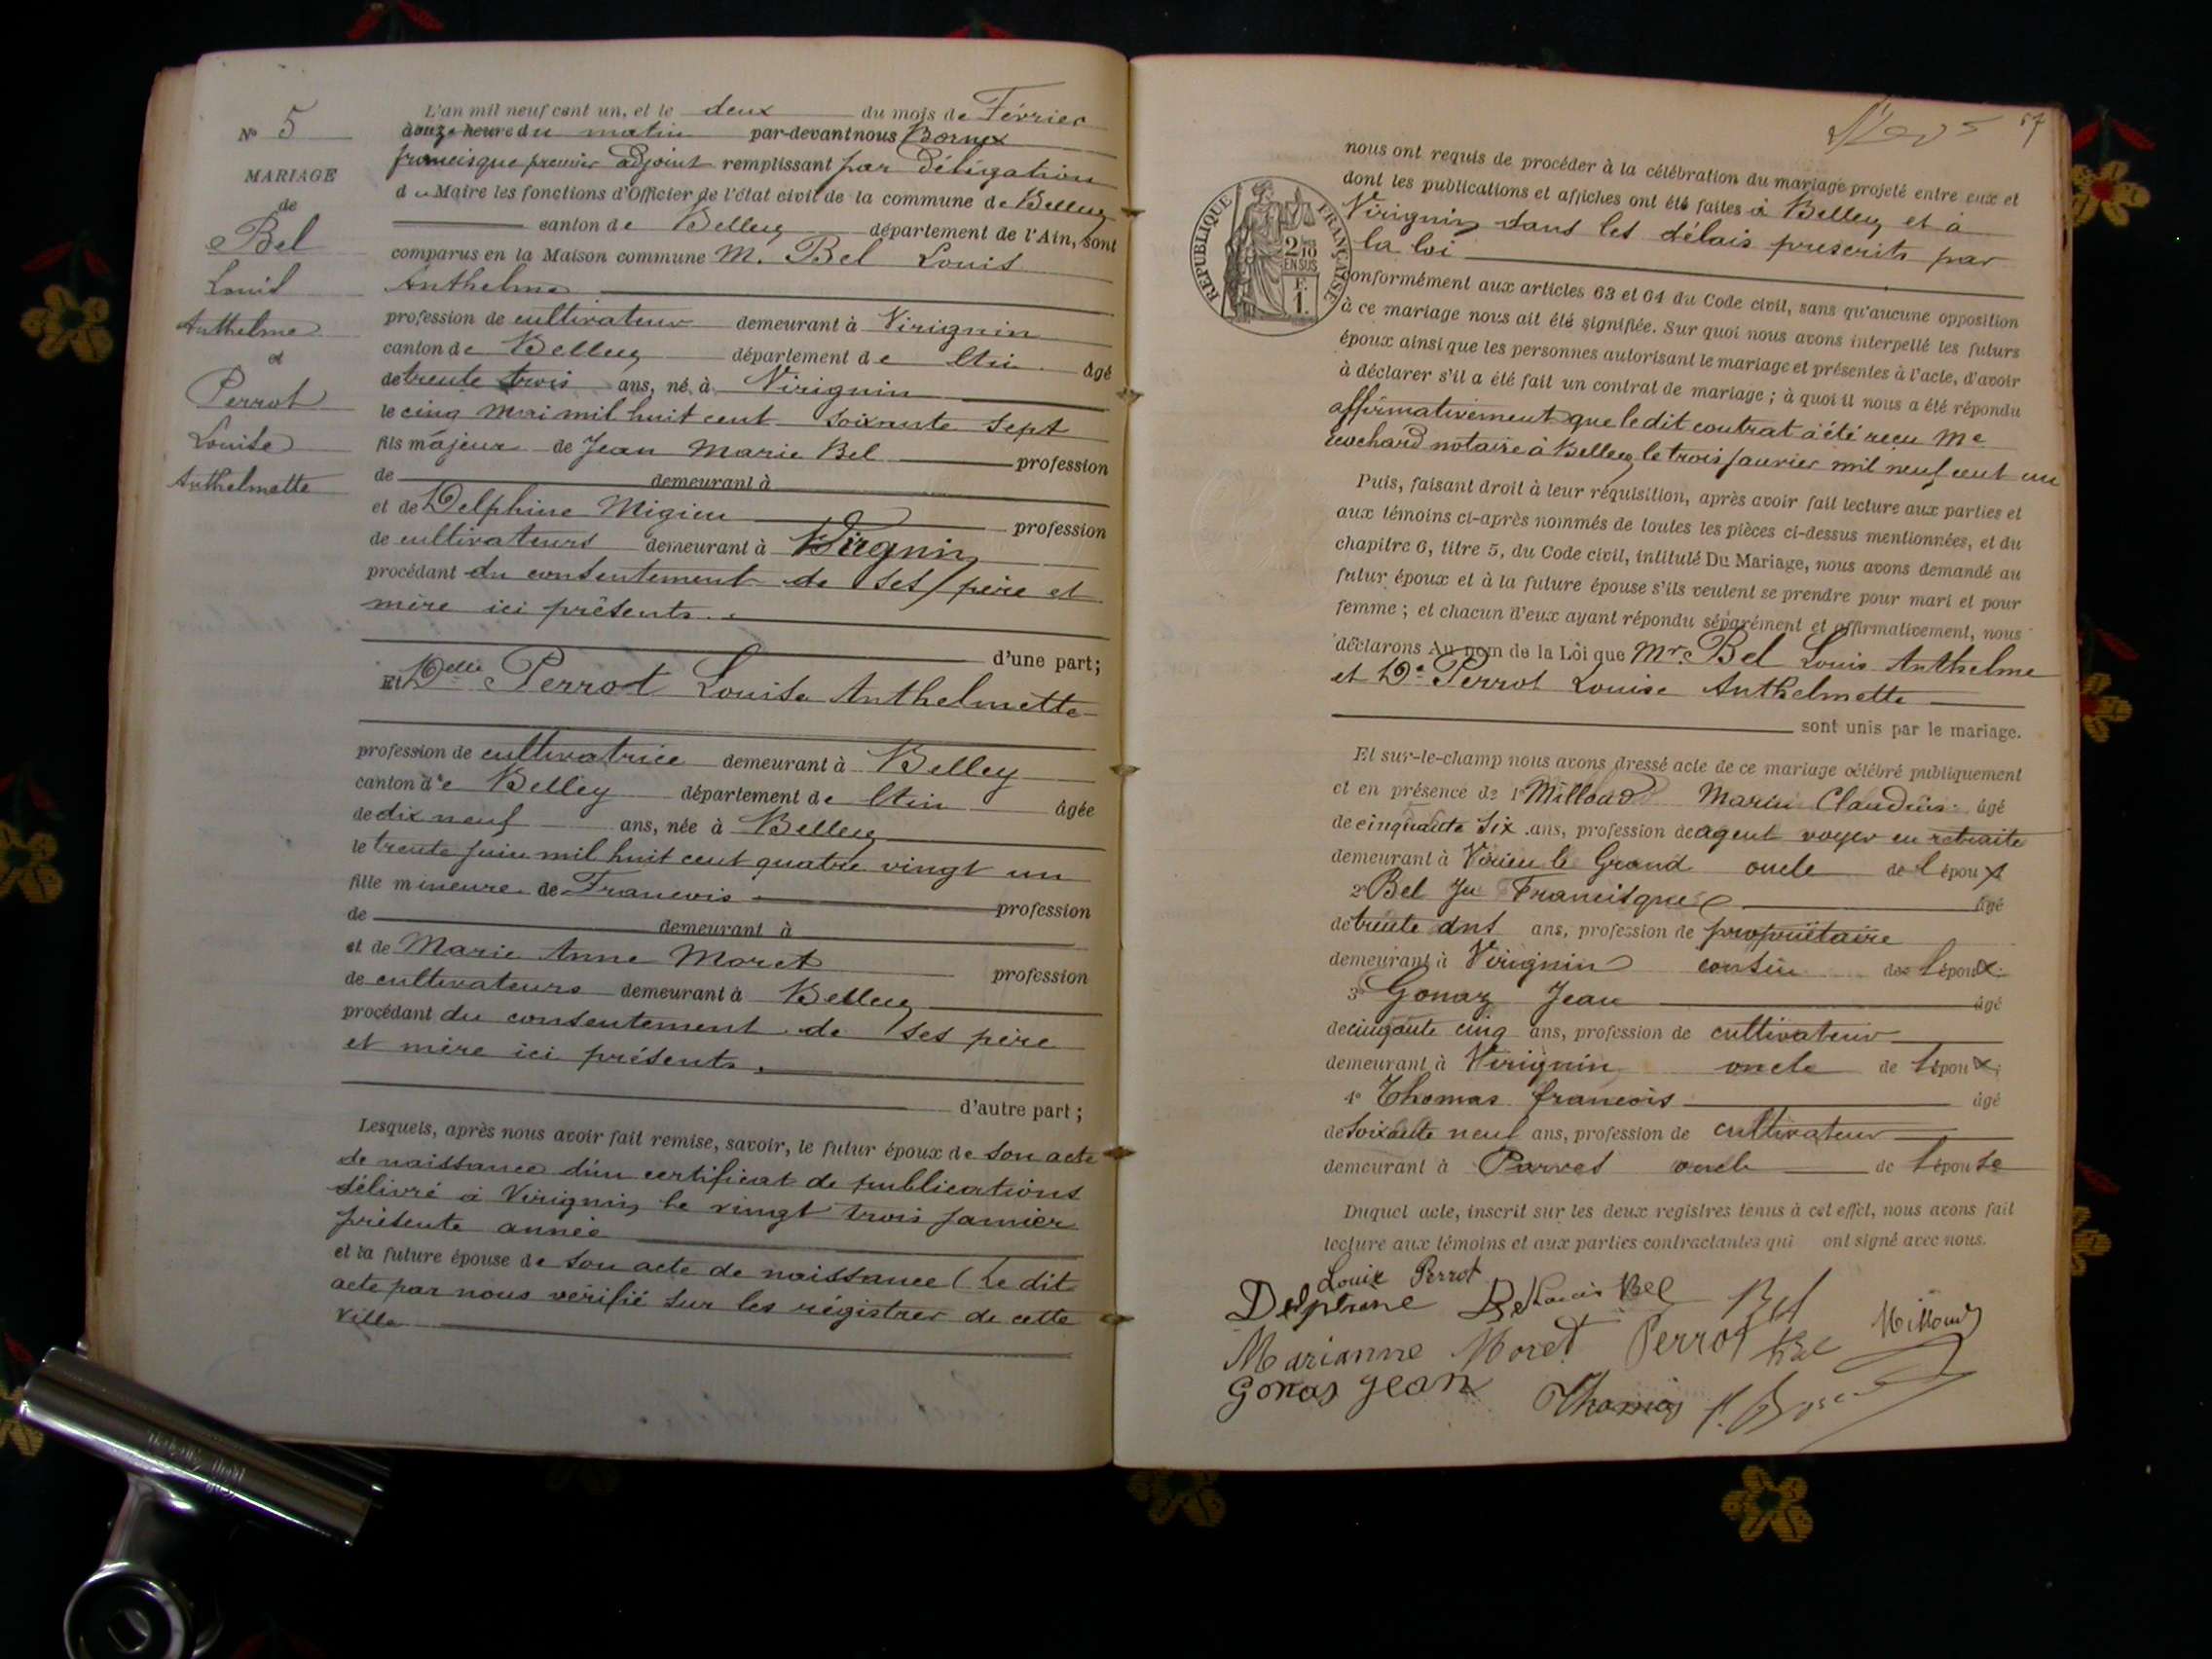 N° 5
MARIAGE
de
Bel
Louis
Anthelme
et
Perrot
Louise
Anthelmette
L'an mil neuf cent un, et le deux du mois de Février
à onze heure du matin par-devant nous Bornex
francisque premier adjoint remplissant par Délégation
du Maire les fonctions d'Officier de l'état civil de la commune de Belley
canton de Belley département de l'Ain, sont
comparus en la Maison commune M. Bel Louis
Anthelme
profession de cultivateur demeurant à Virignin
canton de Belley département de Ain âgé
de trente trois ans, né à Virignin
le cinq Mai mil huit cent soixante sept
fils majeur de Jean Marie Bel profession
de demeurant à
et de Delphine Migieu profession
de cultivateurs demeurant à Virgnin
procédant du consentement de ses père et
mère ici présents.
d'une part;
Et Delle Perrot Louise Anthelmette
profession de cultivatrice demeurant à Belley
canton de Belley département de Ain âgée
de dix neuf ans, née à Belley
le trente juin mil huit cent quatre vingt un
fille mineure de Francois profession
de demeurant à
et de Marie Anne Moret profession
de cultivateurs demeurant à Belley
procédant du consentement de ses père
et mère ici présents.
d'autre part;
Lesquels, après nous avoir fait remise, savoir, le futur époux de son acte
de naissance d'un certificat de publications
délivré à Virignin, le vingt trois janvier
présente année
et la future épouse de son acte de naissance (Le dit
acte par nous vérifié sur les régistres de cette
ville
57
nous ont requis de procéder à la célébration du mariage projeté entre eux et
dont les publications et affiches ont été faites à Belley et à
Virignin dans les délais prescrits par
la loi
REPUBLIQUE FRANÇAISE
2/10 EN SUS
F. 1.
conformément aux articles 63 et 64 du Code civil, sans qu'aucune opposition
à ce mariage nous ait été signifiée. Sur quoi nous avons interpellé les futurs
époux ainsi que les personnes autorisant le mariage et présentes à l'acte, d'avoir
à déclarer s'il a été fait un contrat de mariage; à quoi il nous a été répondu
affirmativement que le dit contrat a été reçu Me
cochard notaire à Belley le trois janvier mil neuf cent un
Puis, faisant droit à leur réquisition, après avoir fait lecture aux parties et
aux témoins ci-après nommés de toutes les pièces ci-dessus mentionnées, et du
chapitre 6, titre 5, du Code civil, intitulé Du Mariage, nous avons demandé au
futur époux et à la future épouse s'ils veulent se prendre pour mari et pour
femme; et chacun d'eux ayant répondu séparément et affirmativement, nous
déclarons Au nom de la Loi que Mr. Bel Louis Anthelme
et De Perrot Louise Anthelmette
sont unis par le mariage.
Et sur-le-champ nous avons dressé acte de ce mariage célébré publiquement
et en présence de 1° Milloud Marin Claudius âgé
de cinquante six ans, profession de agent voyer en retraite
demeurant à Virieu le Grand oncle de l'époux
2° Bel Jn Francisque âgé
de trente ans, profession de propriétaire
demeurant à Virignin cousin de l'époux
3° Gonaz Jean âgé
de cinqante cinq ans, profession de cultivateur
demeurant à Virignin oncle de l'époux
4° Thomas francois âgé
de soixante neuf ans, profession de cultivateur
demeurant à Parves oncle de l'épouse
Duquel acte, inscrit sur les deux registres tenus à cet effet, nous avons fait
lecture aux témoins et aux parties contractantes qui ont signé avec nous.
Louise Perrot
Delphine Louis Bel Bel Milloud
Marianne Moret Perrot Bel
Gonas Jean Thomas